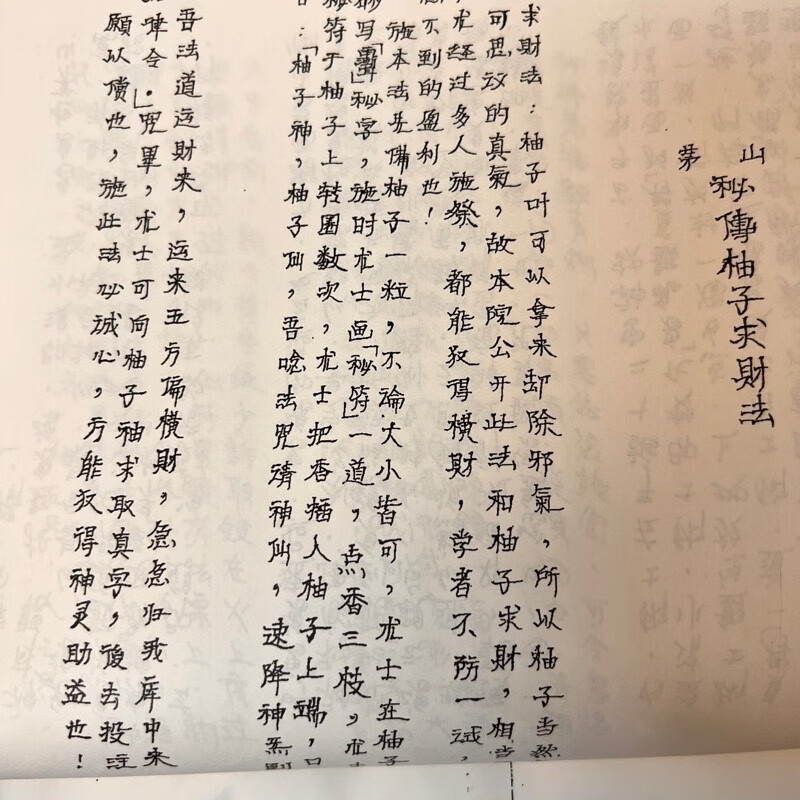 茅山
秘傳柚子求財法
求財法：柚子叶可以拿来却除邪氣，所以柚子当然
可思议的真氣，故本院公开此法和柚子求財，相当
术经过多人施祭，都能获得横財，学者不防一试，
不到的盈利也！
施本法先備柚子一粒，不論大小皆可，术士在柚子
写「」秘字，施时术士画「秘符」一道，点香三枝，术
秘符于柚子上转圈数次，术士把香插入柚子上端，口
：「柚子神，柚子仙，吾唸法咒請神仙，速降神
吾法道运財来，运来五方偏横財，急急归我库中来
律令。」咒畢，术士可向柚子神求取真字，後去投注
願以償也，施此法必诚心，方能获得神灵助益也！